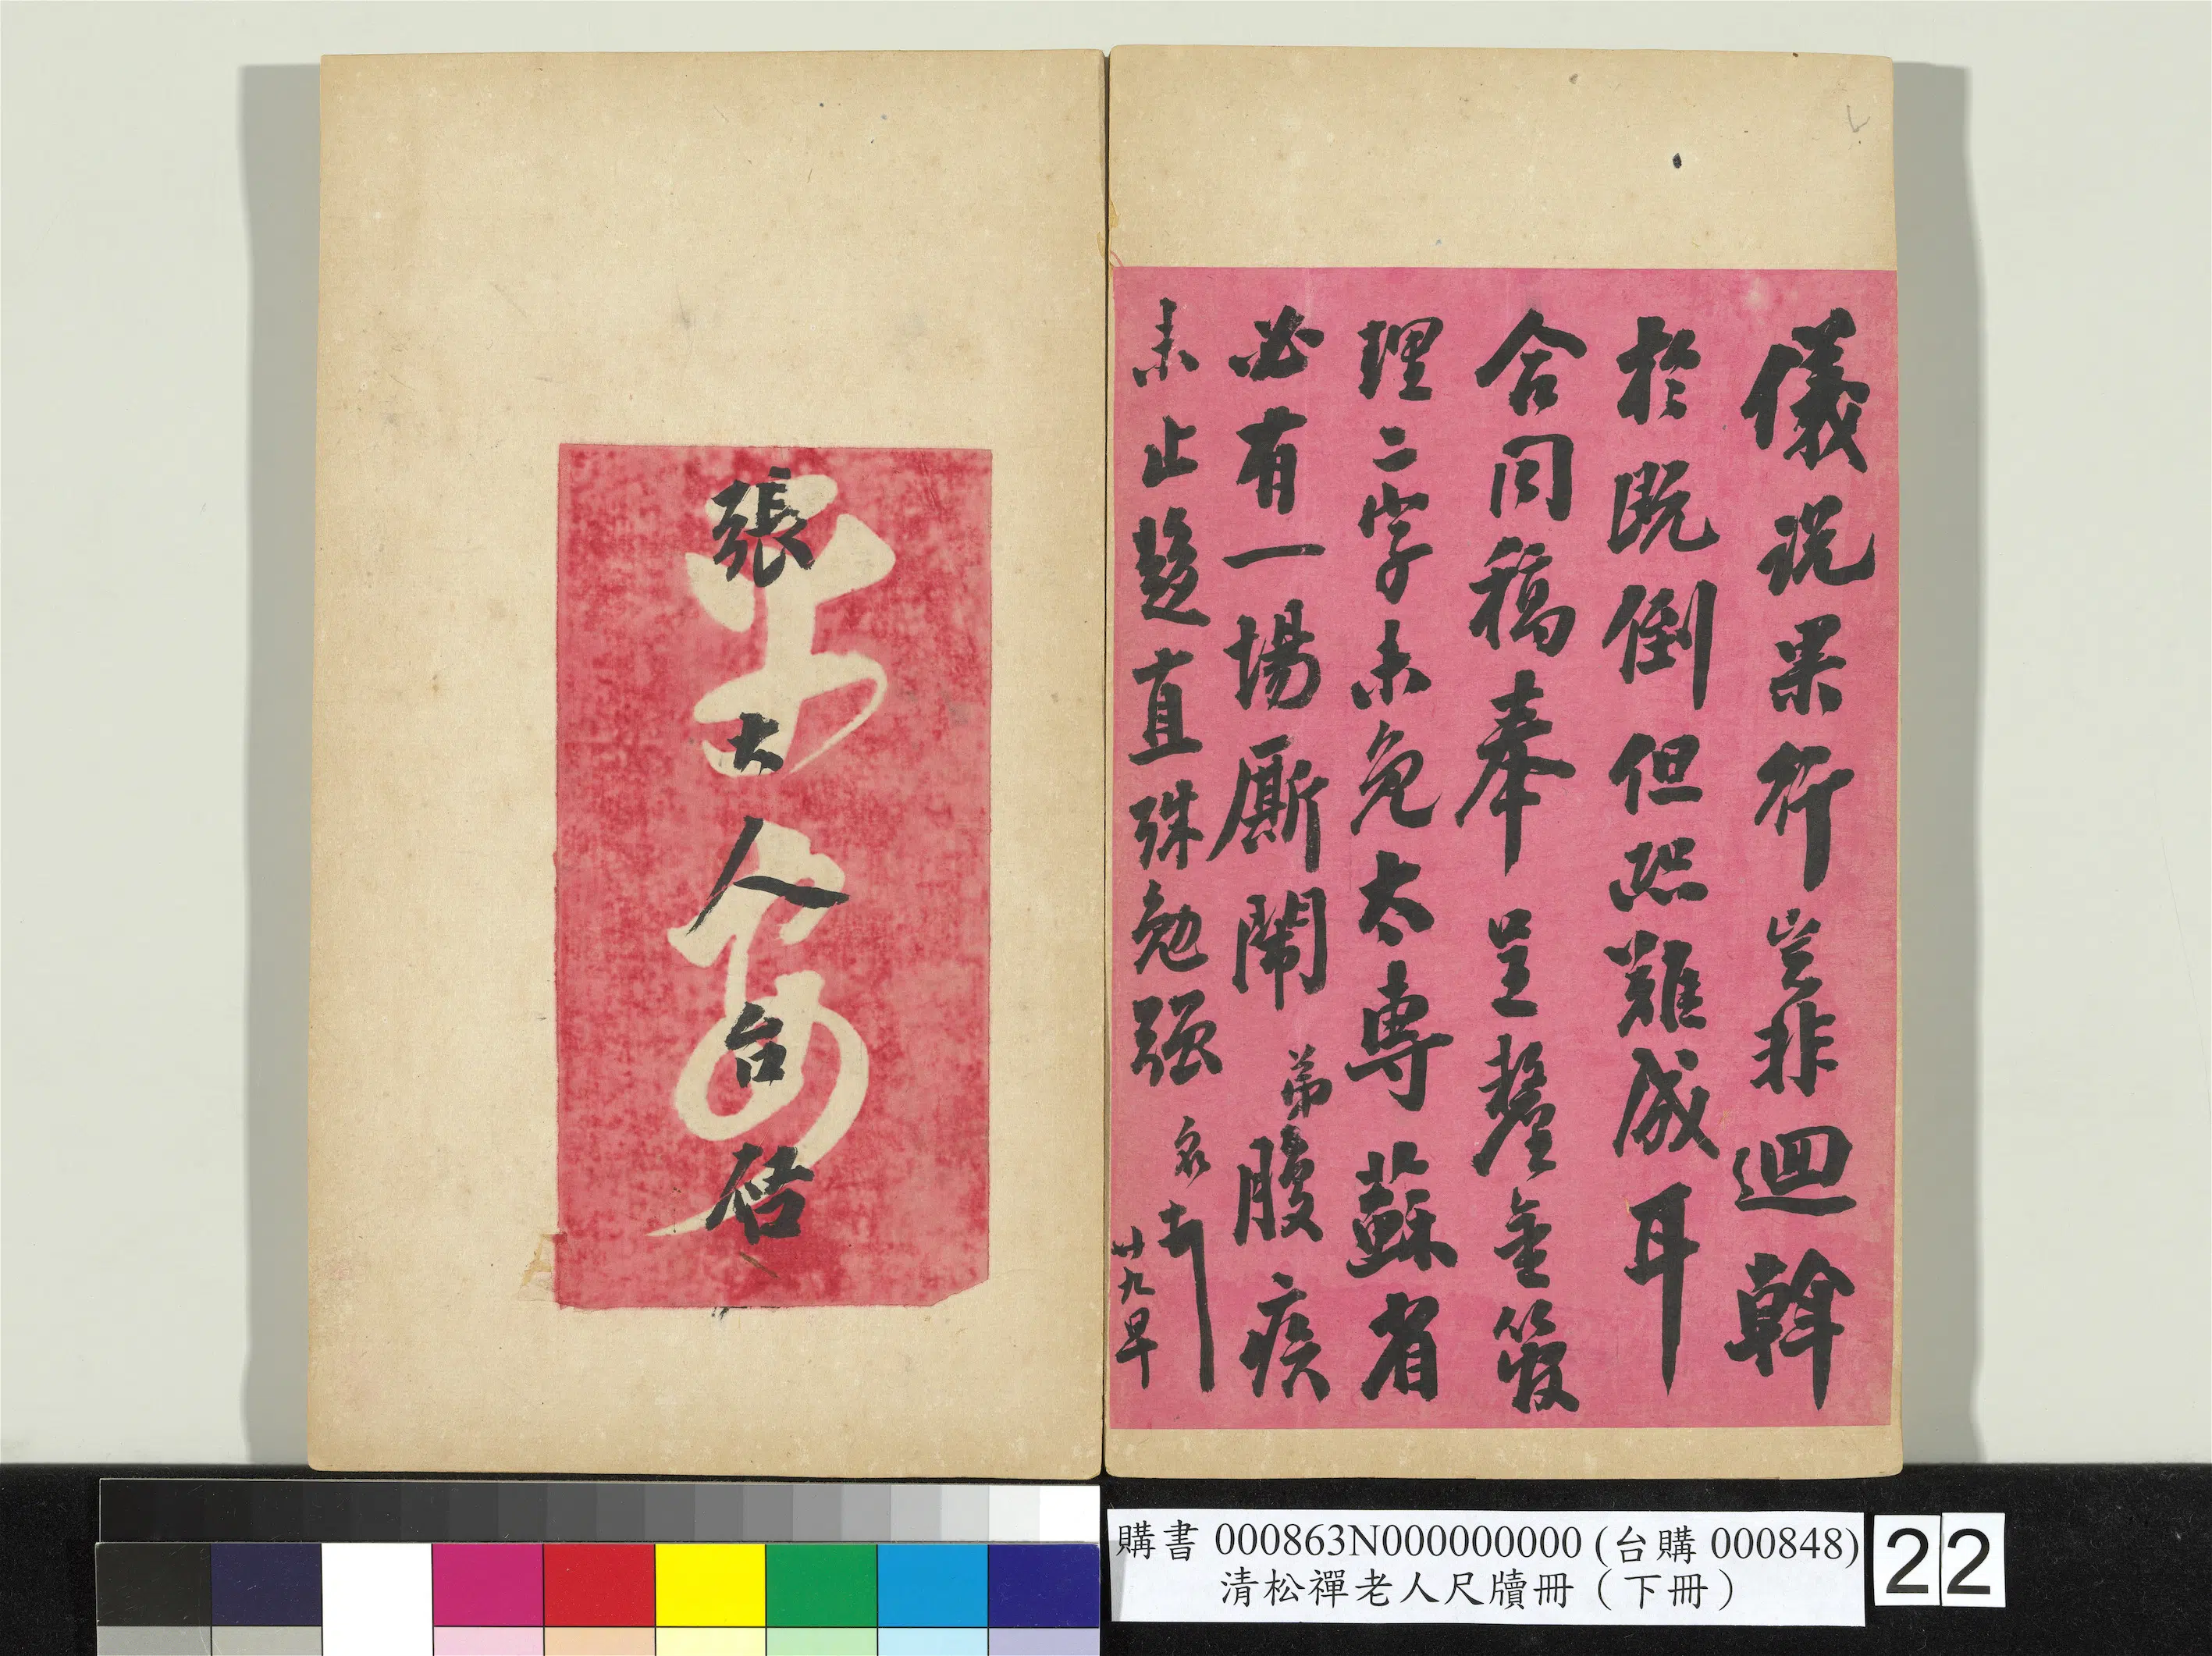 儀説果行豈非迴斡
於既倒但恐難成耳
合同稿奉呈鏨金簽
理二字未免太專蘇省
必有一場廝鬧弟腹疾
未止趨直殊勉強
名頓
廿九早
張大人台啓
平安
購書 000863N000000000 (台購 000848)
清松禪老人尺牘冊（下冊）
22